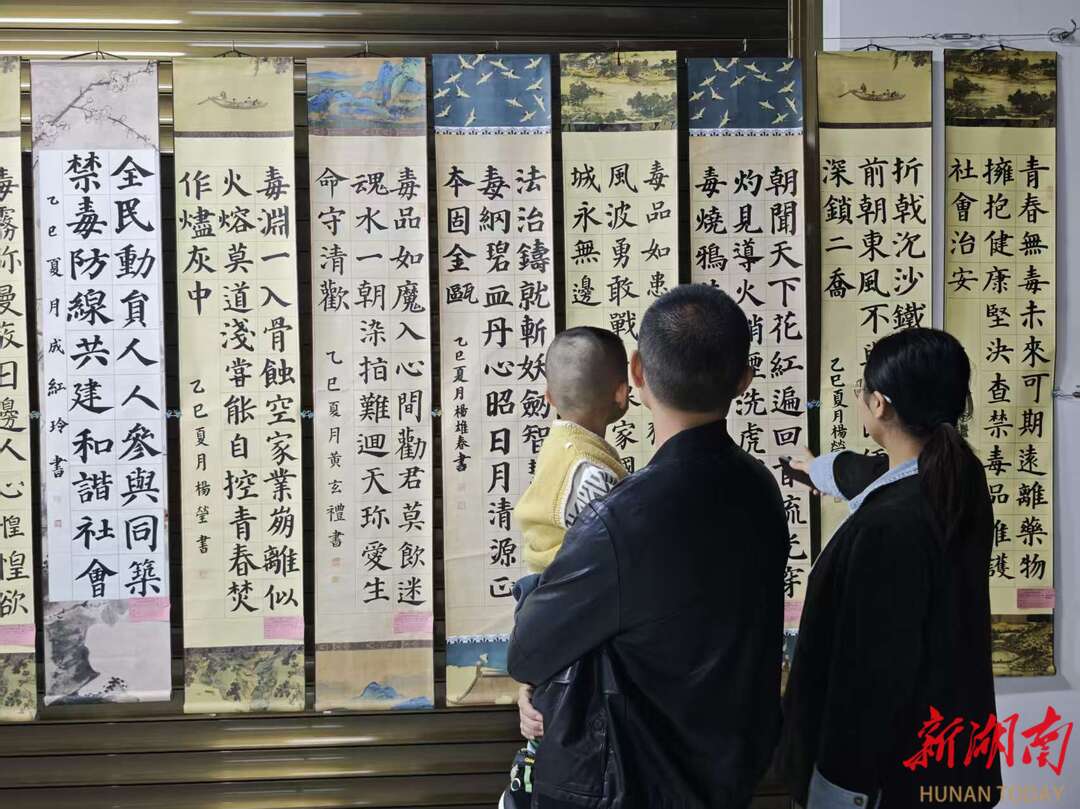 青春無毒未來可期遠離藥物
擁抱健康堅決查禁毒品維護
社會治安
折戟沉沙鐵
前朝東風不
深鎖二喬
乙巳夏月楊瑩
朝聞天下花紅遍回首流光穿
灼見導火硝煙洗虎
毒燒鴉
毒品如患
風波勇敢戰
家國
城永無邊
法治鑄就斬妖劍智
毒納碧血丹心昭日月清源正
本固金甌
乙巳夏月楊雄春書
毒品如魔入心間勸君莫飲迷
魂水一朝染拍難迴天珍愛生
命守清歡
乙巳夏月黃玄禮書
毒淵一入骨蝕空家業崩離似
火熔莫道淺嘗能自控青春焚
作燼灰中
乙巳夏月楊瑩書
全民動員人人參與同築
禁毒防線共建和諧社會
乙巳夏月成紅玲書
毒霧弥漫蔽日邊人心惶惶欲
新湖南
HUNAN TODAY